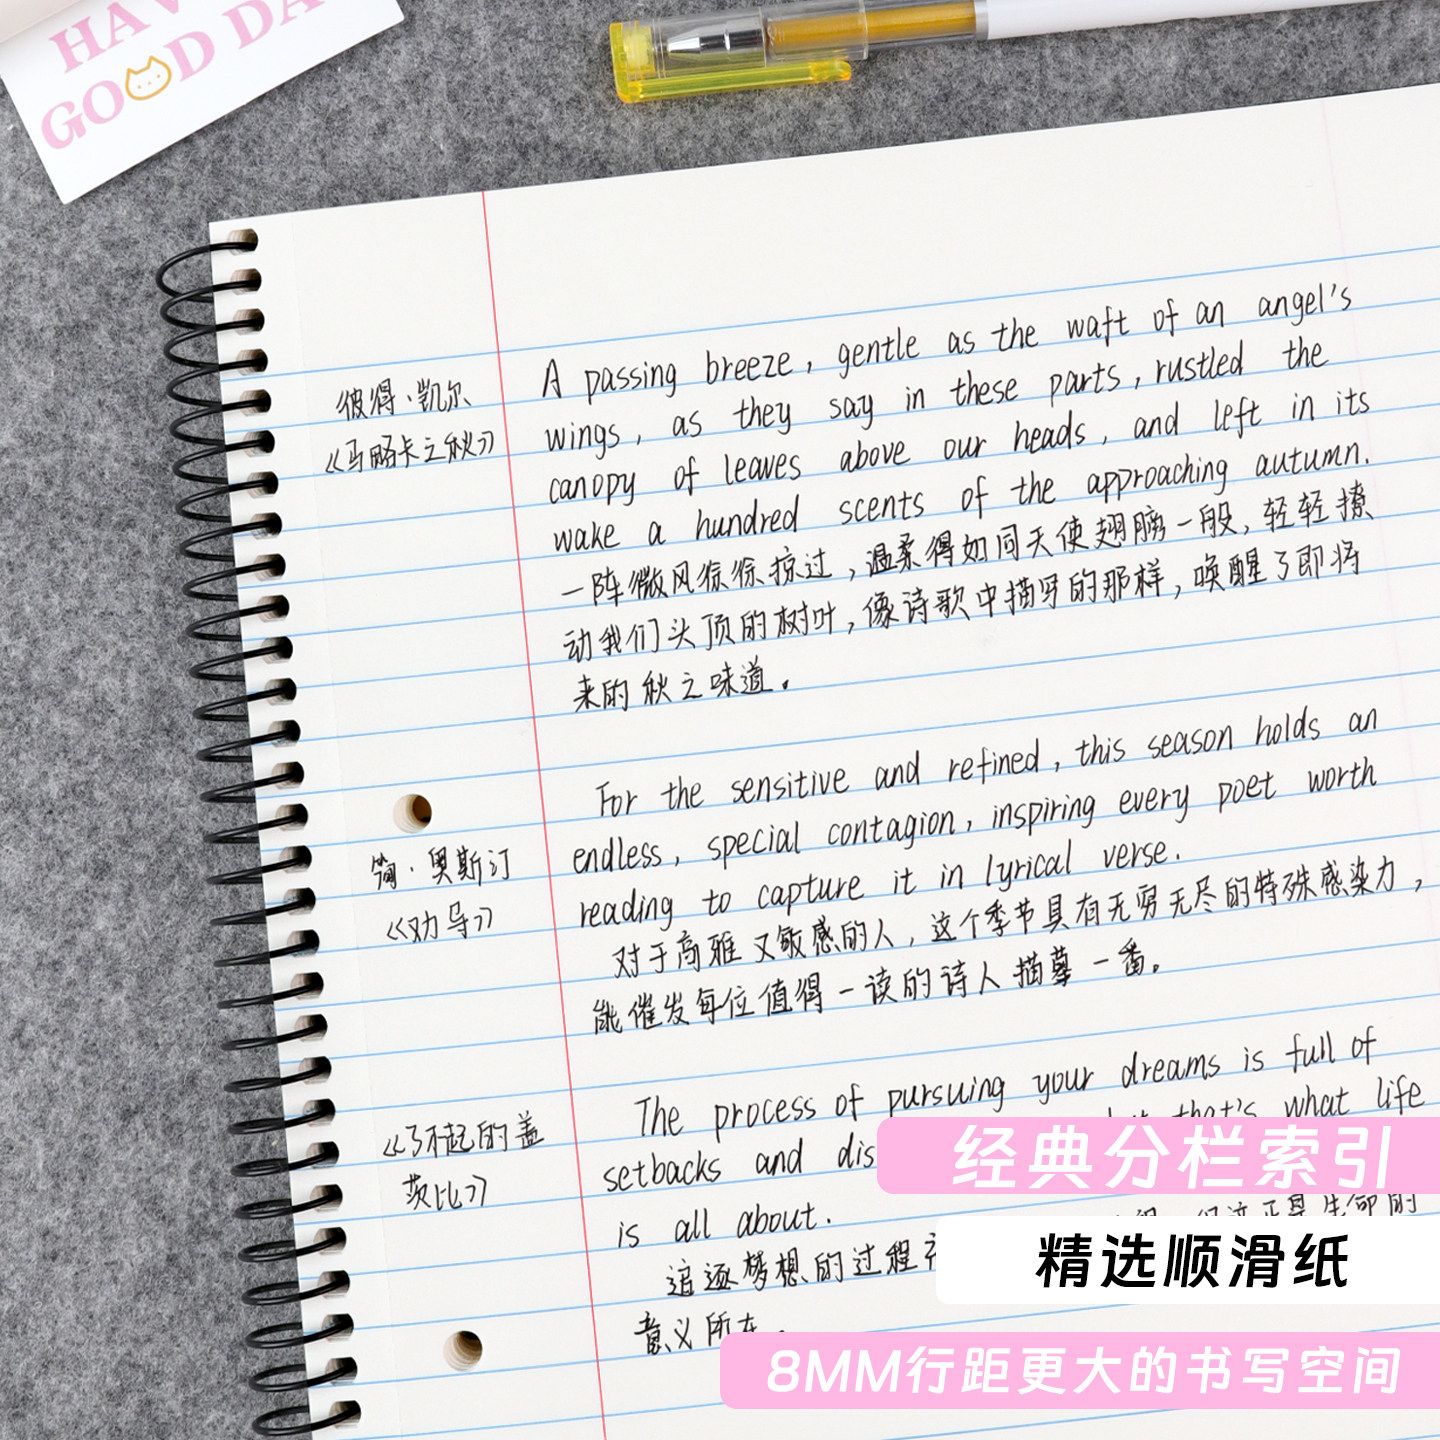 GOOD DA
彼得·凯尔
《马略卡之秋》
A passing breeze, gentle as the waft of an angel's
wings, as they say in these parts, rustled the
canopy of leaves above our heads, and left in its
wake a hundred scents of the approaching autumn.
一阵微风徐徐掠过，温柔得如同天使翅膀一般，轻轻撩
动我们头顶的树叶，像诗歌中描写的那样，唤醒了即将
来的秋之味道。
简·奥斯汀
《劝导》
For the sensitive and refined, this season holds an
endless, special contagion, inspiring every poet worth
reading to capture it in lyrical verse.
对于高雅又敏感的人，这个季节具有无穷无尽的特殊感染力，
能催发每位值得一读的诗人描摹一番。
《了不起的盖
茨比》
The process of pursuing your dreams is full of
setbacks and that's what life
is all about.
追逐梦想的过程 正是生命的
意义所在。
经典分栏索引
精选顺滑纸
8MM行距更大的书写空间